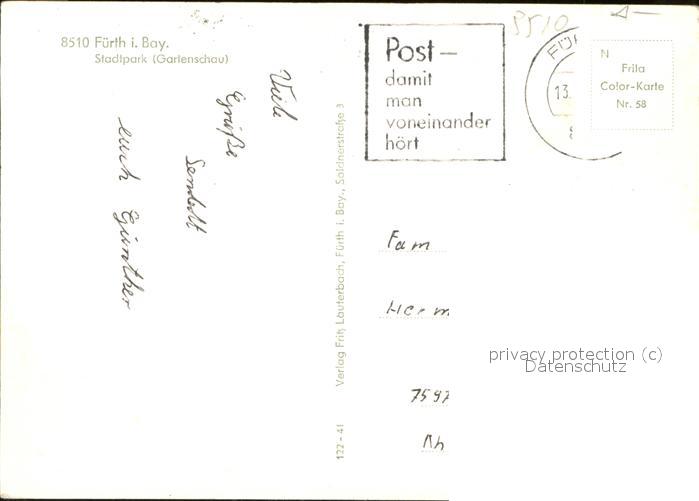 8510 Fürth i. Bay.
Stadtpark (Gartenschau)
Viele
Grüße
Sendett
euch Günther
Verlag Fritz Lauterbach, Fürth i. Bay., Saldnerstraße 3
122 - 41
Post –
damit
man
voneinander
hört
8510
FÜR
13.
8
N
Frila
Color-Karte
Nr. 58
Fam
Herm
7597
Rh
privacy protection (c)
Datenschutz